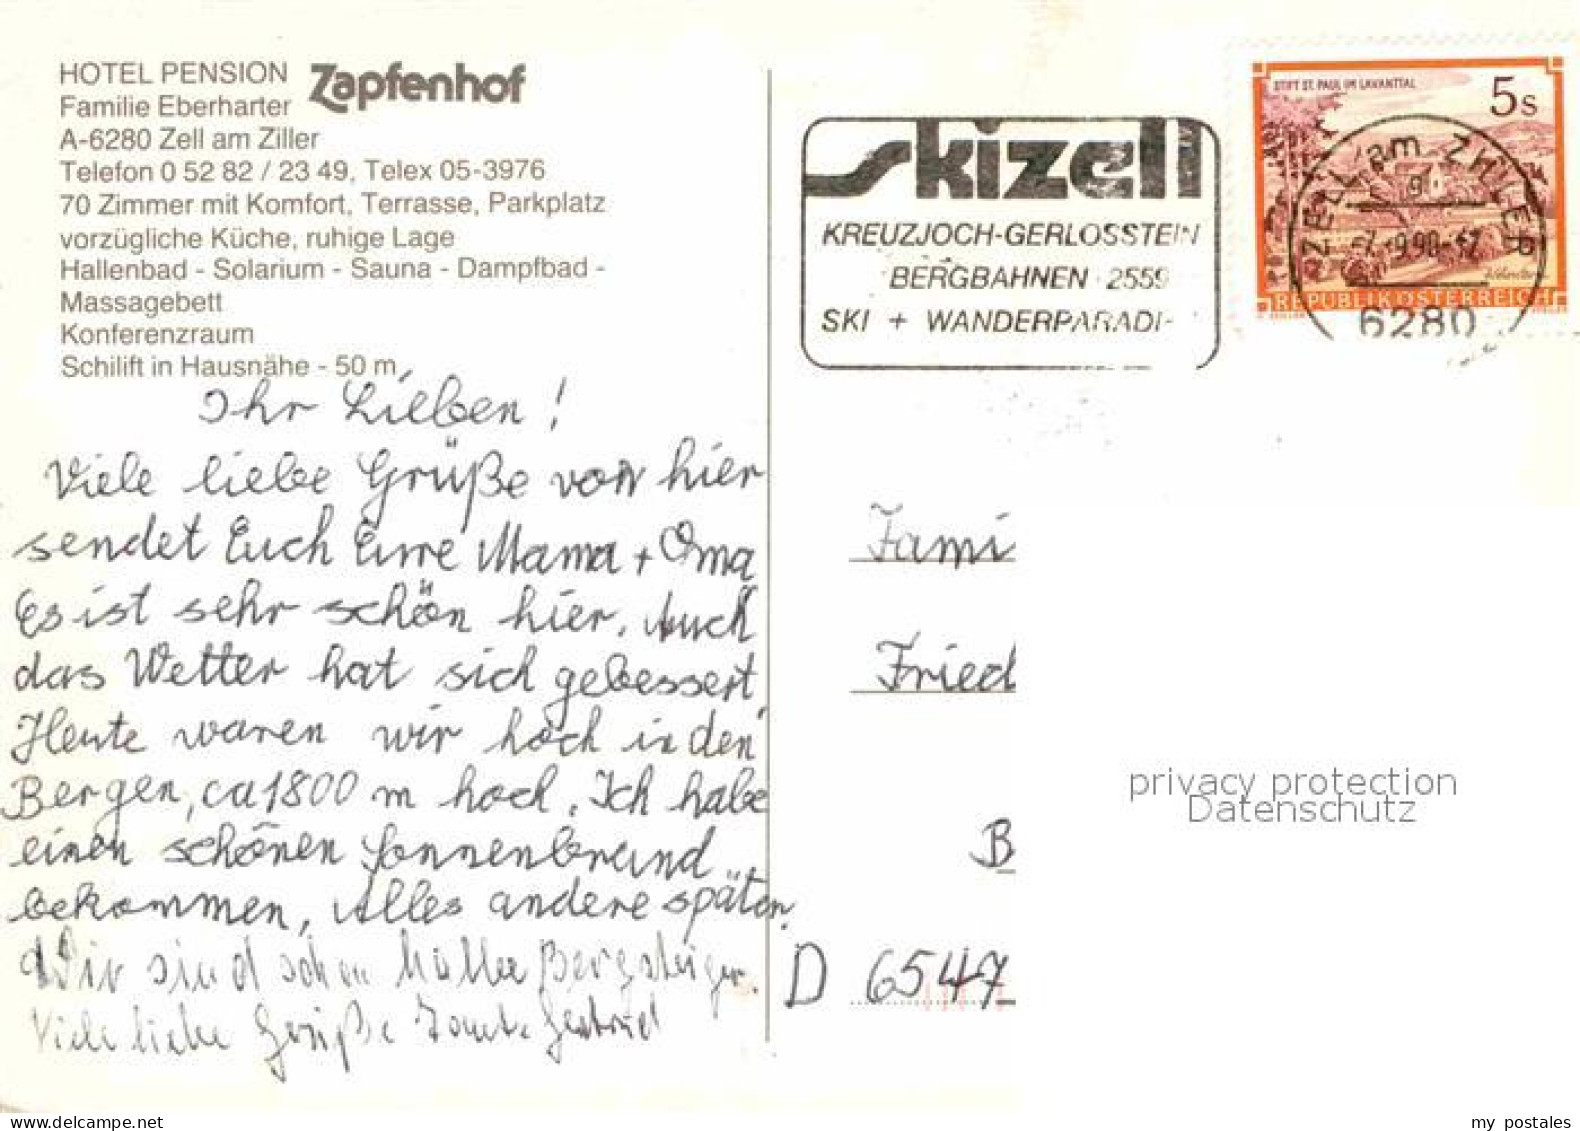 HOTEL PENSION Zapfenhof
Familie Eberharter
A-6280 Zell am Ziller
Telefon 0 52 82 / 23 49, Telex 05-3976
70 Zimmer mit Komfort, Terrasse, Parkplatz
vorzügliche Küche, ruhige Lage
Hallenbad - Solarium - Sauna - Dampfbad -
Massagebett
Konferenzraum
Schilift in Hausnähe - 50 m
Ihr Lieben!
Viele liebe Grüße von hier
sendet Euch Eure Mama + Oma
Es ist sehr schön hier. Auch
das Wetter hat sich gebessert.
Heute waren wir hoch in den
Bergen, ca 1800 m hoch. Ich habe
einen schönen Sonnenbrand
bekommen, Alles andere später.
Wir sind schon Bergsteiger.
Viele liebe Grüße Tante Gertrud
skizell
KREUZJOCH-GERLOSSTEIN
BERGBAHNEN 2559
SKI + WANDERPARADI-
STIFT ST. PAUL IM LAVANTTAL
5s
REPUBLIK ÖSTERREICH
ZELL am ZILLER
9.90-17
6280
Fami
Fried
B
D 6547
privacy protection
Datenschutz
www.delcampe.net
my postales